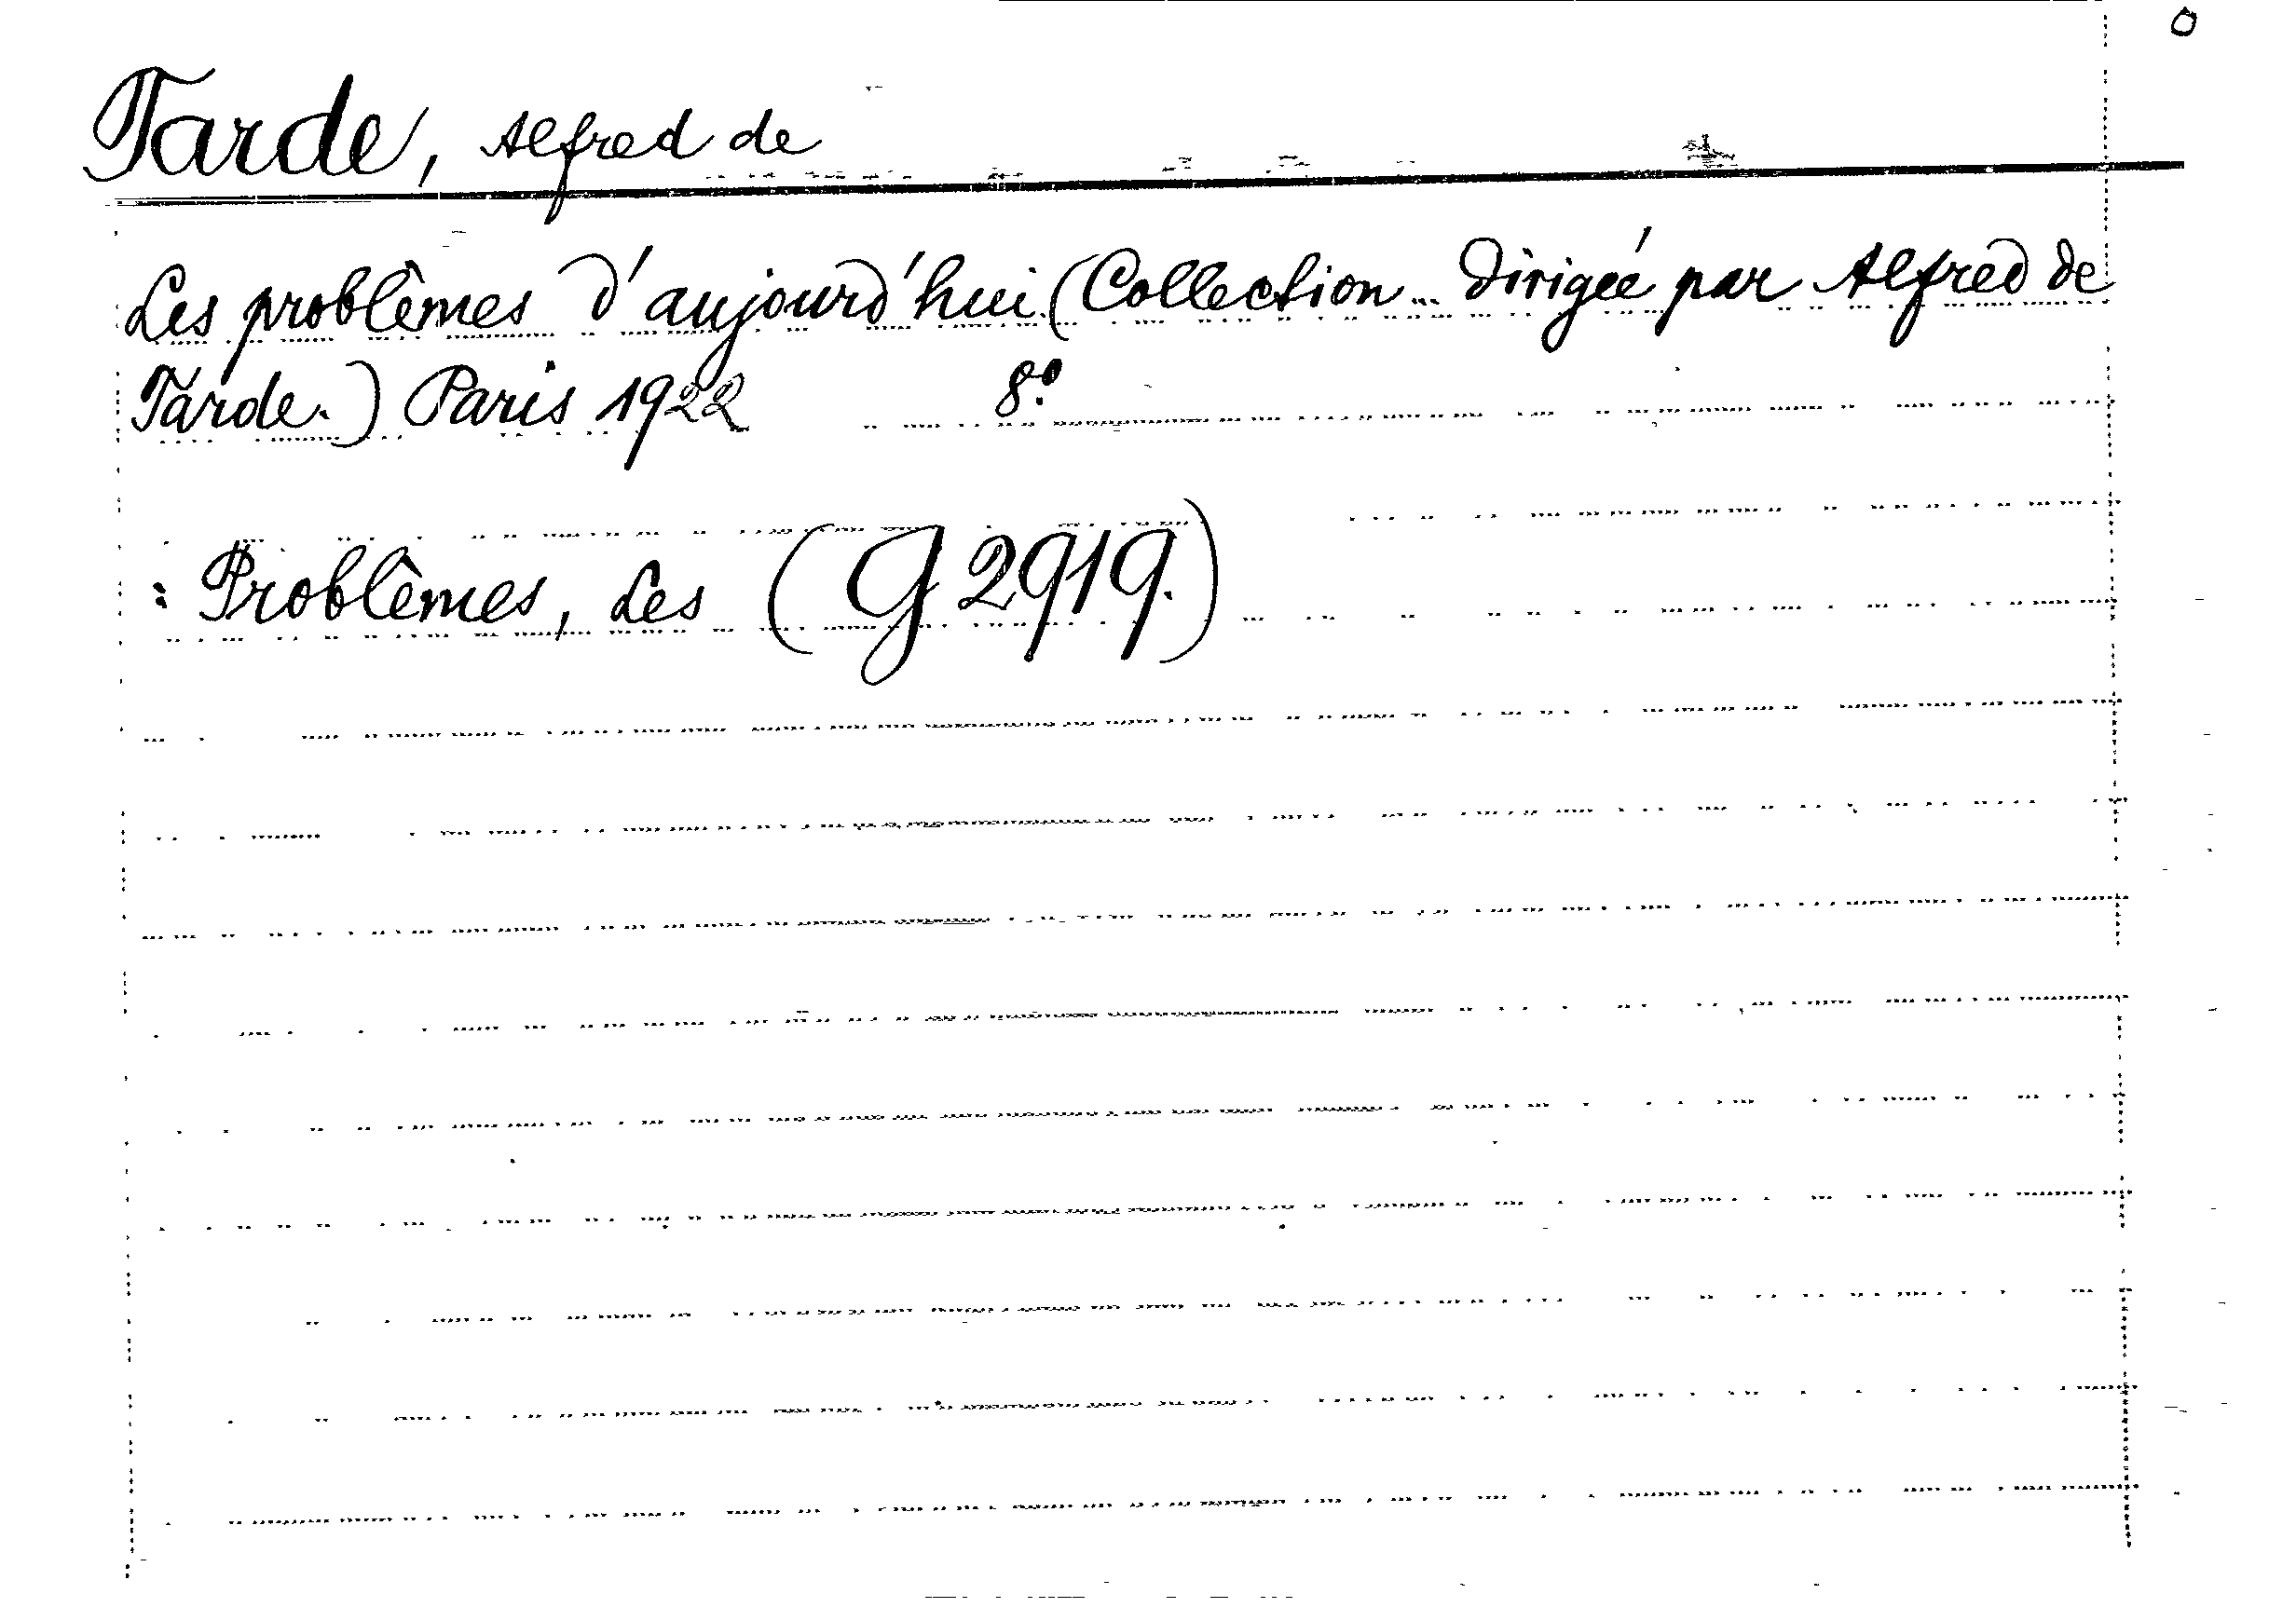 Tarde, Alfred de
Les problêmes d'aujourd'hui. (Collection... dirigée par Alfred de
Tarde.) Paris 1922 8°.
: Problêmes, Les (G 2919.)